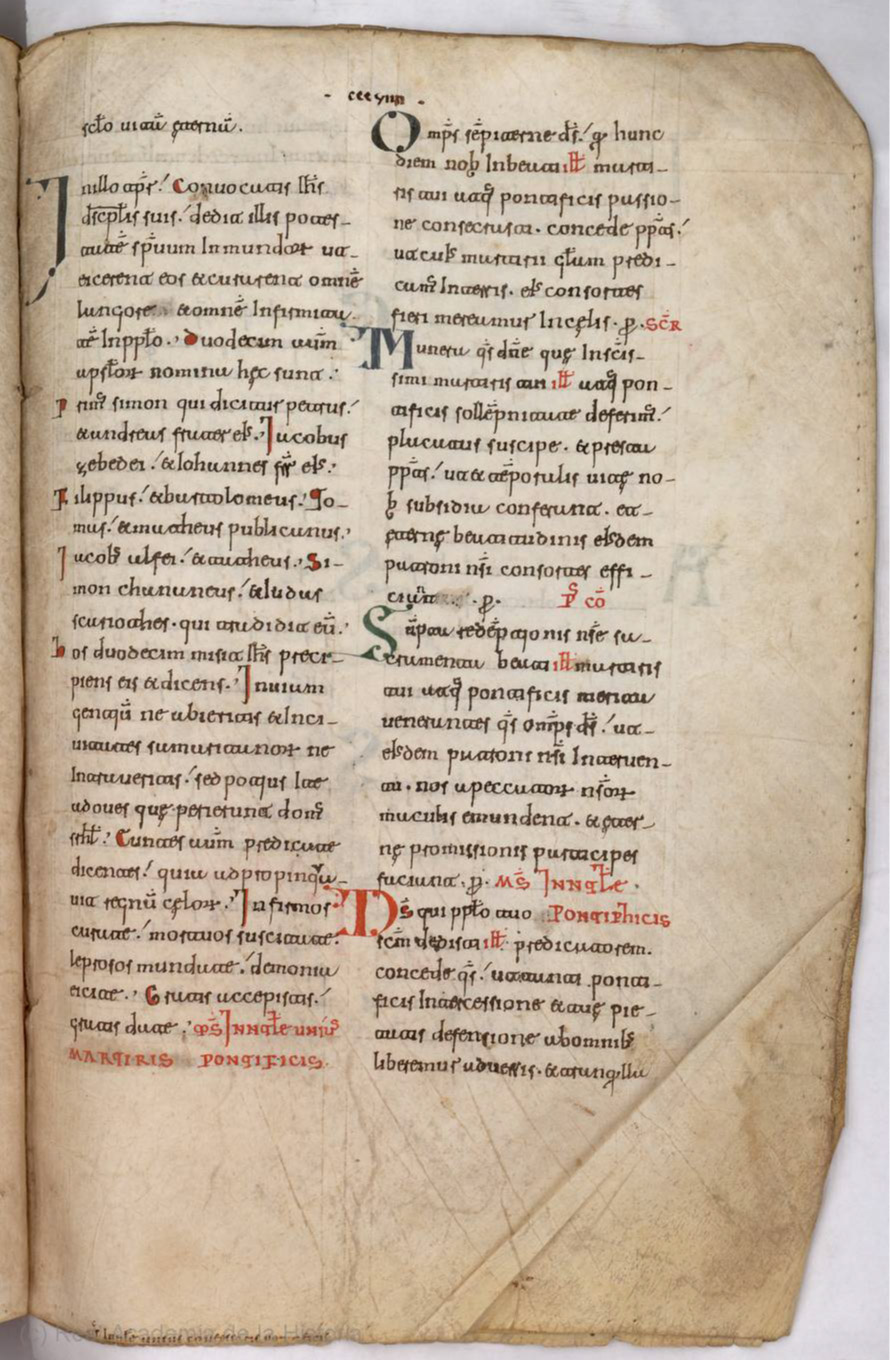 ccc viiii
sc̄lo uitā ęternā.
In illo tp̄r. Conuocatis Ih̄s
dsc̄plis suis. dedit illis potes-
tatē sp̄uum Inmundor ut
eicerent eos et curarent omnē
languorē et omnē Infirmita-
tē Inpp̄lo. Duodecim
apstl̄or nomina hęc sunt.
Primū simon qui dicitur petrus.
et andreas frater eīs. Iacobus
zebedei. et Iohannes fr̄ eīs.
Filippus. et bartolomeus. To-
mas. et matheus publicanus.
Iacob alfei. et tatheus. Si-
mon chananeus. et Iudas
scariothes. qui tradidit eū.
hos duodecim misit Ih̄s preci-
piens eis et dicens. In uiam
gentiū ne abieritis et Inci-
uitates samaritanor ne
Intraueritis. sed potius Ite
ad oues quę perierunt dom̄
srh̄l. Euntes predicate
dicentes. quia adpropinqua-
uit regnū cęlor. Infirmos
curate. mortuos suscitate.
leprosos mundate. demonia
eicite. Gratis accepistis.
gratis date. M̄S IN NT̄LE UNIUS
MARTIRIS PONTIFICIS
Omp̄s sēpiterne d̄s. qui hunc
diem nob Inbeati ill̄ marti-
ris tui uatq pontificis passio-
ne consecrasti. concede pp̄tis.
ut cuīs martirii predi-
cam̄ Interris. eīs consortes
fieri mereamur Incęlis. p. SCR̄
Munera q̄s dn̄e quę Insc̄is-
simi martiris tui ill̄ uatq pon-
tificis sollēpnitate deferim̄.
placatus suscipe. et presta
pp̄tis. ut et tēporalis uitę no-
b subsidia conferant. et
ęternę beatitudinis eīsdem
patroni n̄si consortes effi-
ciant. p. P̄S CŌ
Sūpta redēptionis n̄se sa-
cramenta beati ill̄ martiris
tui uatq pontificis merita
uenerantes q̄s omp̄s d̄s. ut
eīsdem patroni n̄si Interuen-
tu. nos a peccator n̄sor
maculis emundent. et ęter-
nę promissionis participes
faciant. p. M̄S IN NT̄LE.
D̄s qui pp̄lo tuo PONTIFICIS
sc̄m dedisti ill̄ predicatorem.
concede q̄s. ut tanti ponti-
ficis Intercessione et tuę pie-
tatis defensione ab omnib
liberemur aduersis. et tranq̄lla